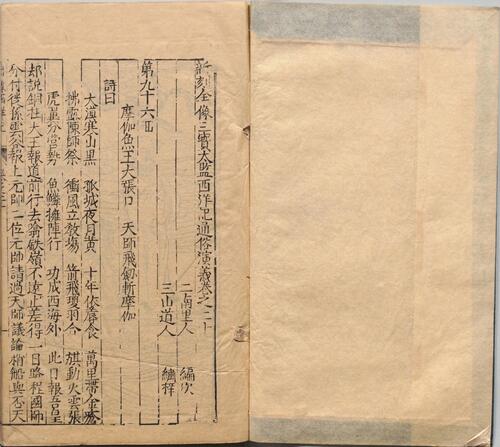 新刻全像三寳太監西洋記通俗演義卷之二十
二南里人 編次
三山道人 綉梓
第九十六囬
摩伽魚王大張口 天師飛劔斬摩伽
詩曰
大漠寒山黒 孤城夜月黄 十年依蓐食 萬里帶金瘡
拂露陳師祭 衝風立教塲 箭飛瓊羽合 旗動火雲張
虎翼分營勢 魚鱗擁陣行 功成西海外 此日報吾皇
却說銅柱大王報道前行去翁鉄嶺不遠止差得一日路程國師
分付後係雲谷報上元帥二位元帥請過天師議論𥡆船與否天